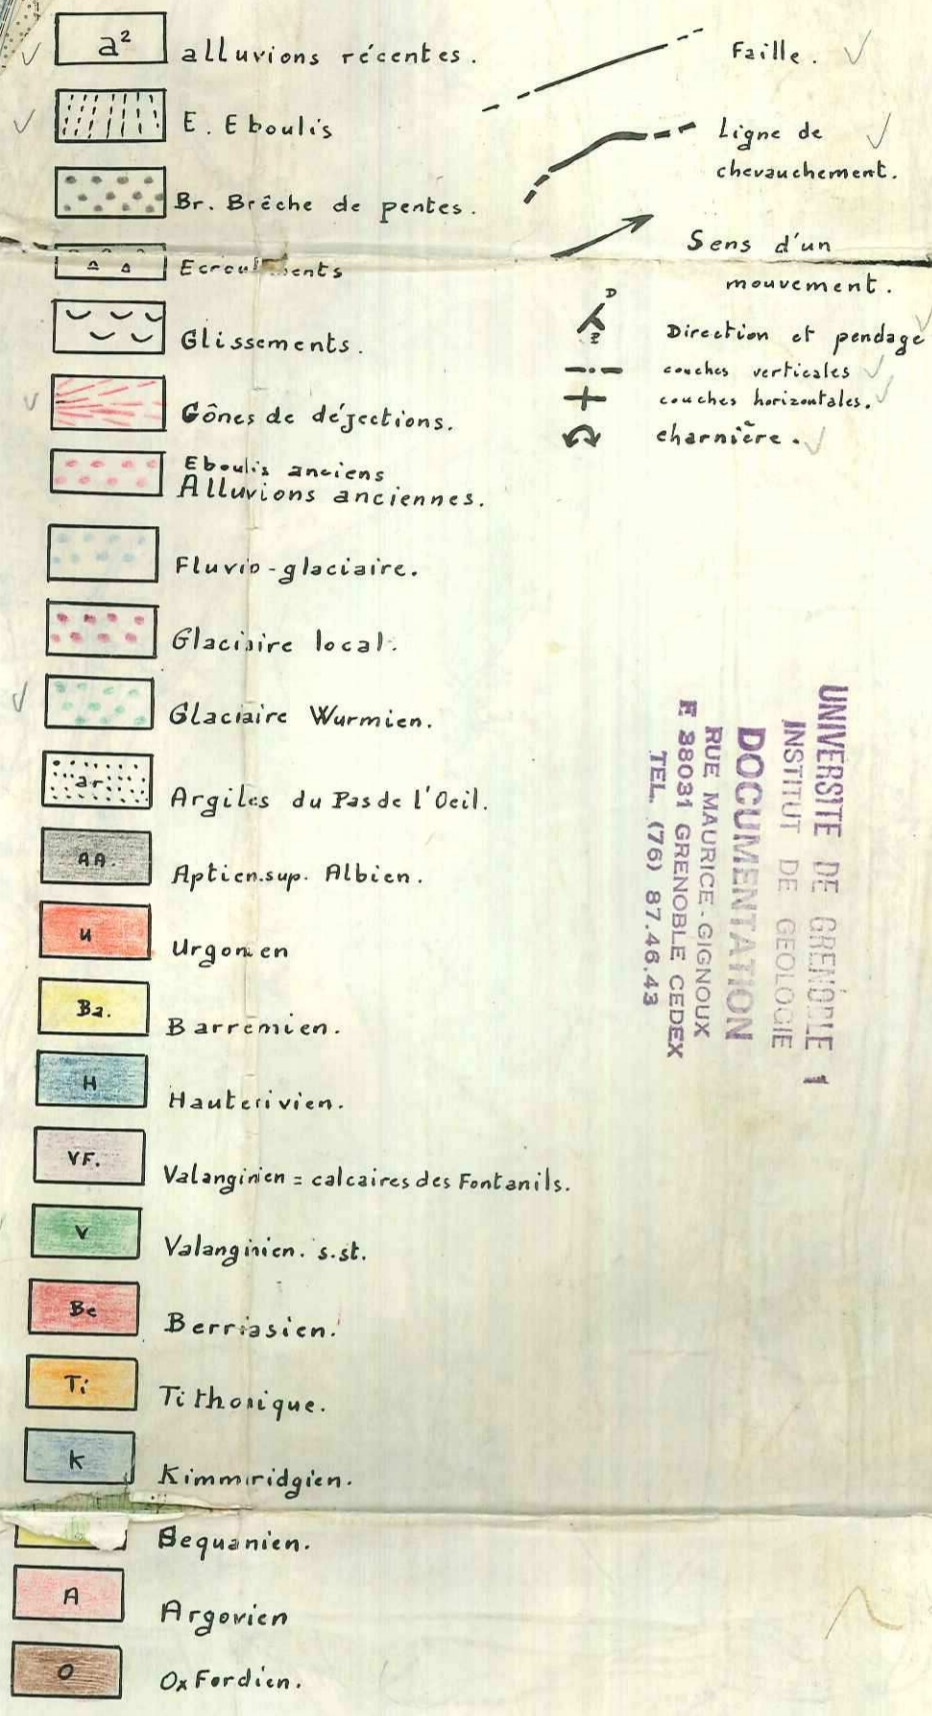 a² alluvions récentes.
E. Eboulis
Br. Brêche de pentes.
Glissements.
Cônes de déjections.
Eboulis anciens
Alluvions anciennes.
Fluvio-glaciaire.
Glaciaire local.
Glaciaire Wurmien.
ar Argiles du Pas de l'Oeil.
AA. Aptien.sup. Albien.
u Urgonien
Ba. Barremien.
H Hauterivien.
VF. Valanginien = calcaires des Fontanils.
V Valanginien. s.st.
Be Berriasien.
Ti Tithonique.
K Kimmiridgien.
Sequanien.
A Argovien
O Oxfordien.
Faille.
Ligne de
chevauchement.
Sens d'un
mouvement.
D
Direction et pendage
couches verticales
couches horizontales.
charnière.
UNIVERSITE DE GRENOBLE 1
INSTITUT DE GEOLOGIE
DOCUMENTATION
RUE MAURICE-GIGNOUX
F 38031 GRENOBLE CEDEX
TEL. (76) 87.46.43